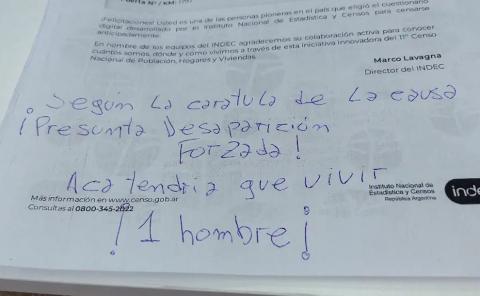 ¡Felicitaciones! Usted es una de las personas pioneras en el país que eligió el cuestionario
digital desarrollado por el Instituto Nacional de Estadística y Censos para censarse
anticipadamente.
En nombre de los equipos del INDEC agradecemos su colaboración activa para conocer
cuántos somos, dónde y cómo vivimos a través de esta iniciativa innovadora del 11° Censo
Nacional de Población, Hogares y Viviendas.
Marco Lavagna
Director del INDEC
Según La caratula de La causa
¡Presunta Desaparición
Forzada!
Aca tendria que vivir
Instituto Nacional de
Estadística y Censos
República Argentina
inde
Más información en www.censo.gob.ar
Consultas al 0800-345-2022
¡1 hombre!